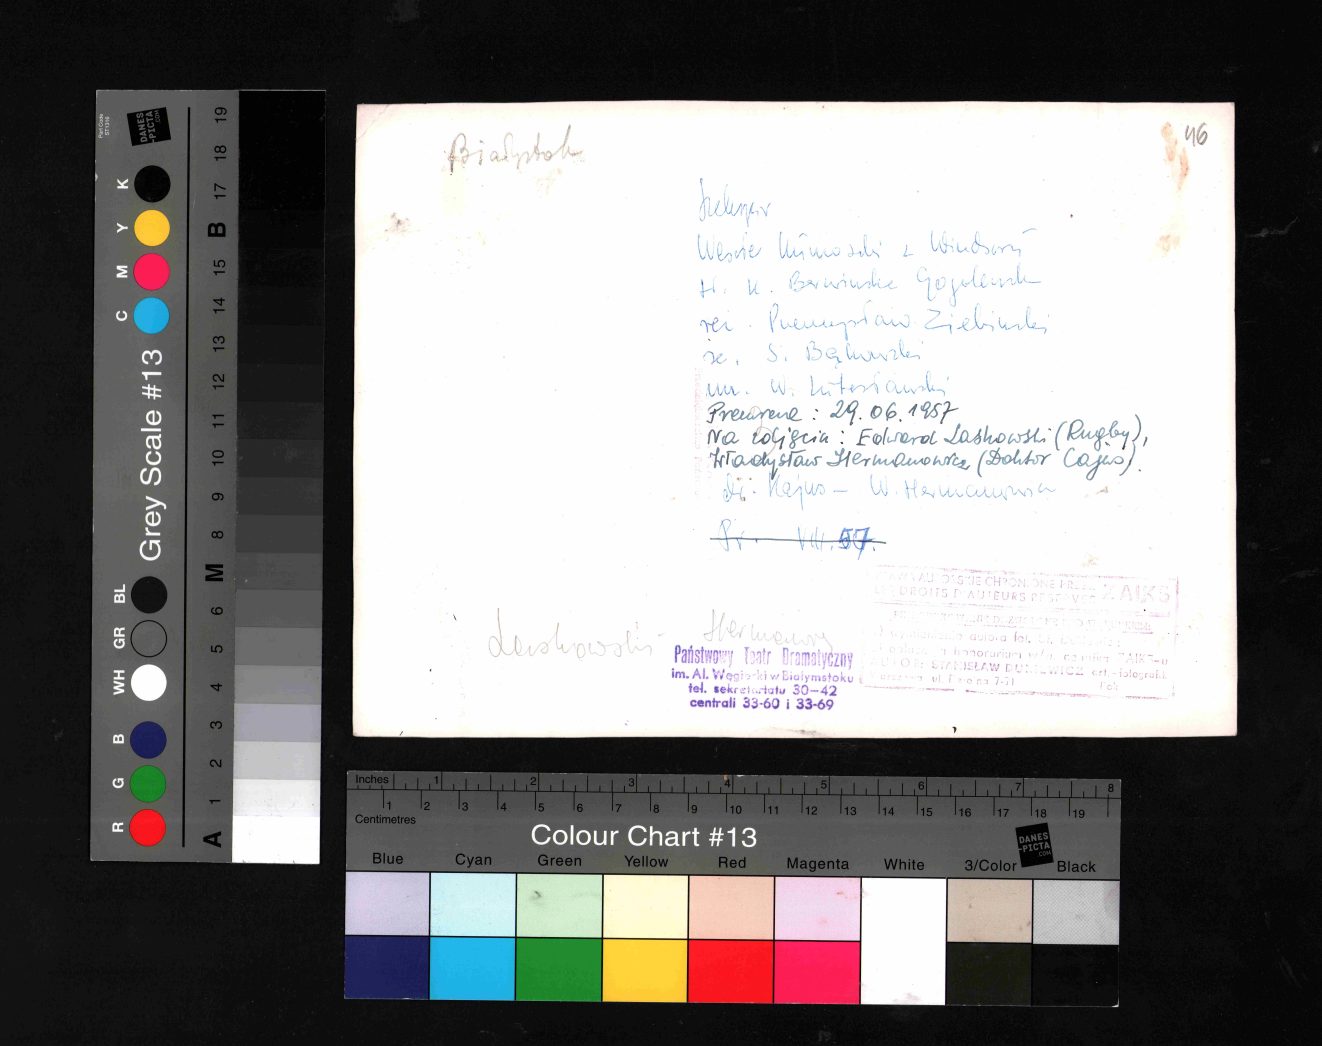 Białystok
46
Szekspir
Wesołe Kumoszki z Windsoru
tł. K. Berwińska Gogolewska
reż. Przemysław Zieliński
sc. S. Bąkowski
Premiera : 29.06.1957
Na zdjęciu : Edward Laskowski (Rugby),
Władysław Hermanowicz (Doktor Cajus).
dr. Kajus — W. Hermanowicz
Pr. VIII. 57.
Laskowski Hermanowicz
Państwowy Teatr Dramatyczny
im. Al. Węgierki w Białymstoku
tel. sekretariatu 30—42
centrali 33-60 i 33-69
ZAIKS
LES DROITS D'AUTEURS RESERVES
AUTOR: STANISŁAW art.-fotografik
Grey Scale #13
DANES
-PICTA
.COM
K Y M C
BL GR WH
B G R
A 1 2 3 4 5 6 M 8 9 10 11 12 13 14 15 B 17 18 19
Inches 1 2 3 4 5 6 7 8
1 2 3 4 5 6 7 8 9 10 11 12 13 14 15 16 17 18 19
Centimetres
Colour Chart #13
DANES
-PICTA
.COM
Blue Cyan Green Yellow Red Magenta White 3/Color Black